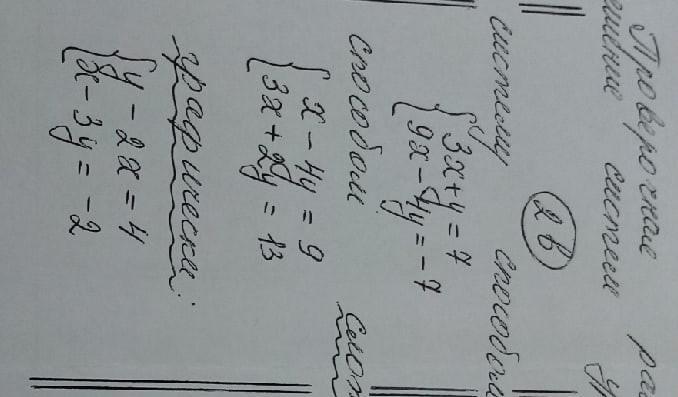 Проверочные
системы
2 в
систему способом
{ 3x + y = 7
9x - 4y = -7
способом
{ x - 4y = 9
3x + 2y = 13
графически:
{ y - 2x = 4
x - 3y = -2